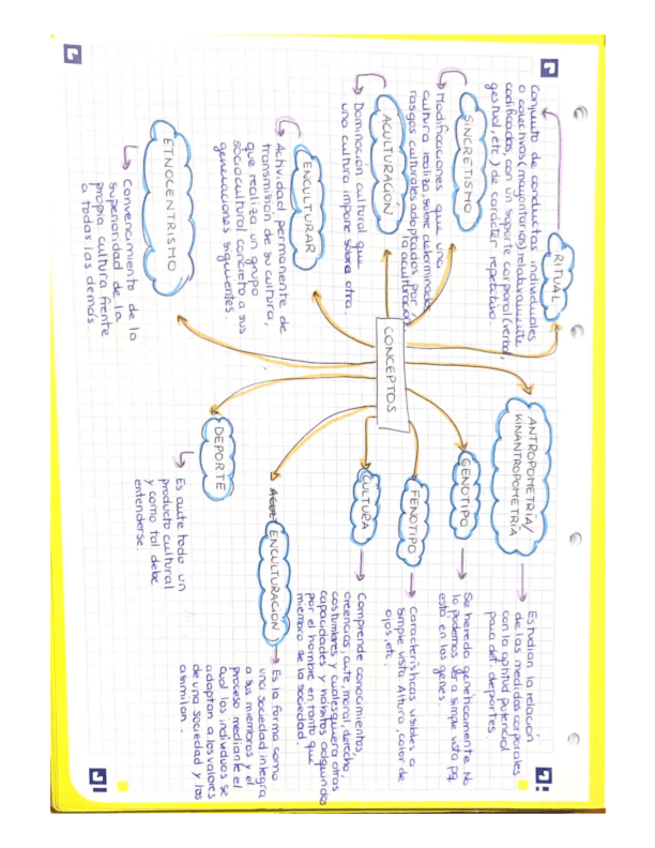 CONCEPTOS
RITUAL
Conjunto de conductas individuales
o colectivos (mayoritarios) relativamente
codificadas, con un soporte corporal (verbal,
gestual, etc.) de carácter repetitivo.
SINCRETISMO
Modificaciones que una
cultura realiza, sobre determinados
rasgos culturales adoptados por
la aculturación
ACULTURACIÓN
Dominación cultural que
una cultura impone sobre otra.
ENCULTURAR
Actividad permanente de
transmisión de su cultura,
que realiza un grupo
sociocultural concreto a sus
generaciones siguientes.
ETNOCENTRISMO
Convencimiento de la
superioridad de la
propia cultura frente
a todas las demás
ANTROPOMETRÍA/
KINANTROPOMETRÍA
Estudian la relación
de las medidas corporales
con la aptitud potencial
para det. deportes.
GENOTIPO
Se hereda genéticamente. No
lo podemos ver a simple vista pq
está en los genes
FENOTIPO
Características visibles a
simple vista. Altura, color de
ojos, etc.
CULTURA
Comprende conocimientos,
creencias, arte, moral, derecho,
costumbres y cualesquiera otras
capacidades y hábitos adquiridos
por el hombre en tanto que
miembro de la sociedad.
ENCULTURACION
Es la forma como
una sociedad integra
a sus miembros y el
proceso mediante el
cual los individuos se
adaptan a los valores
de una sociedad y los
asimilan.
DEPORTE
Es ante todo un
producto cultural
y como tal debe
entenderse.